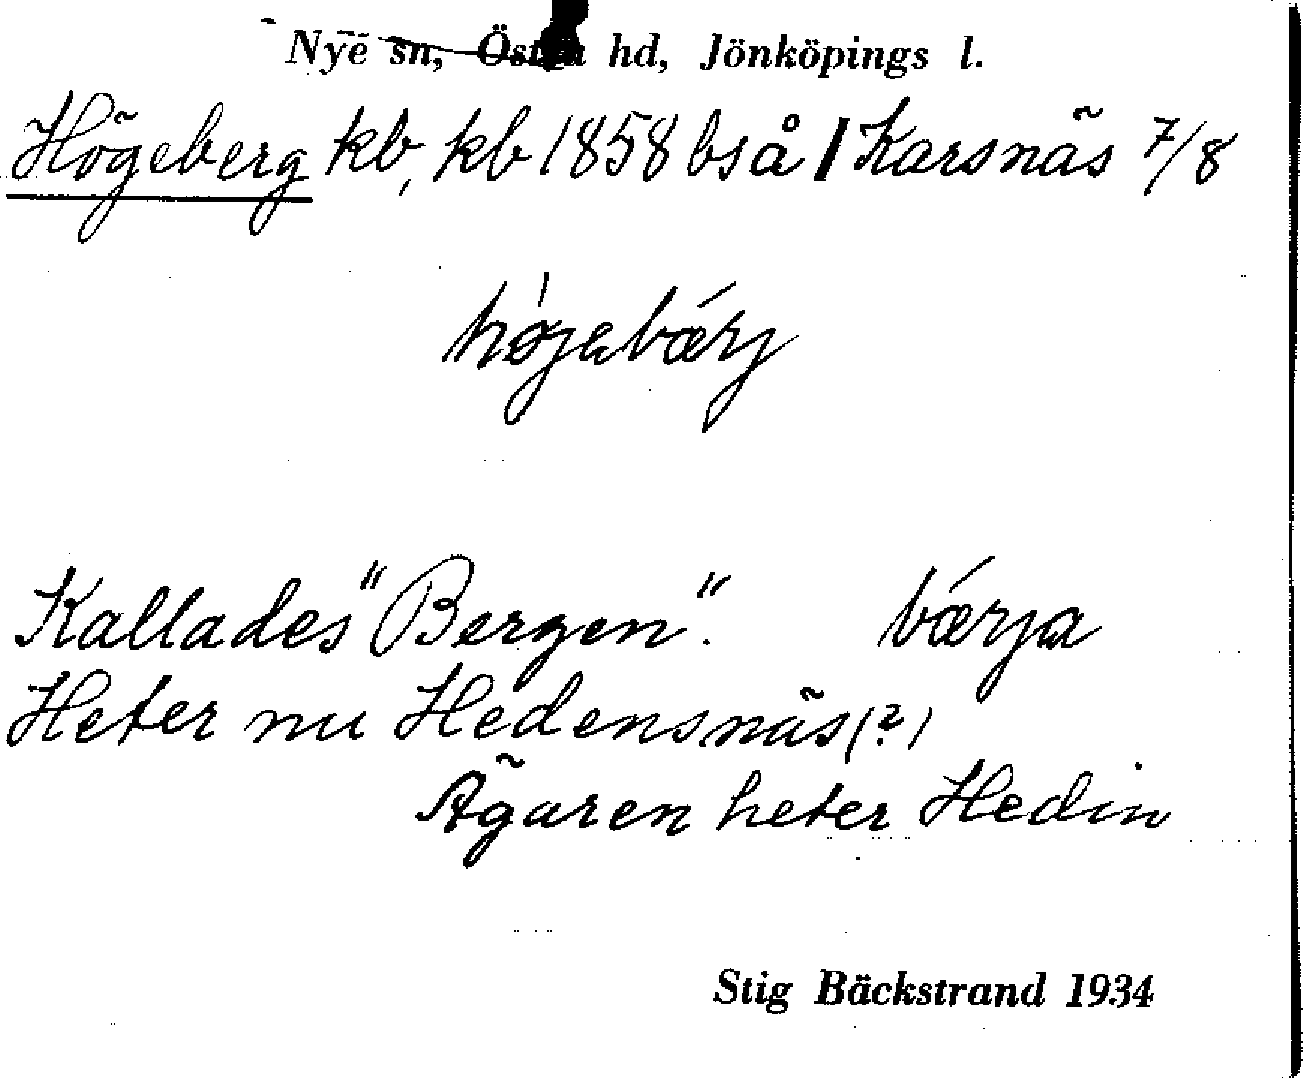 Nye sn, Östra hd, Jönköpings l.
Högeberg kb, kb 1858 bs å / Karsnäs 7/8
högabärj
Kallades "Bergen". bärja
Heter nu Hedensnäs (?)
Ägaren heter Hedin
Stig Bäckstrand 1934